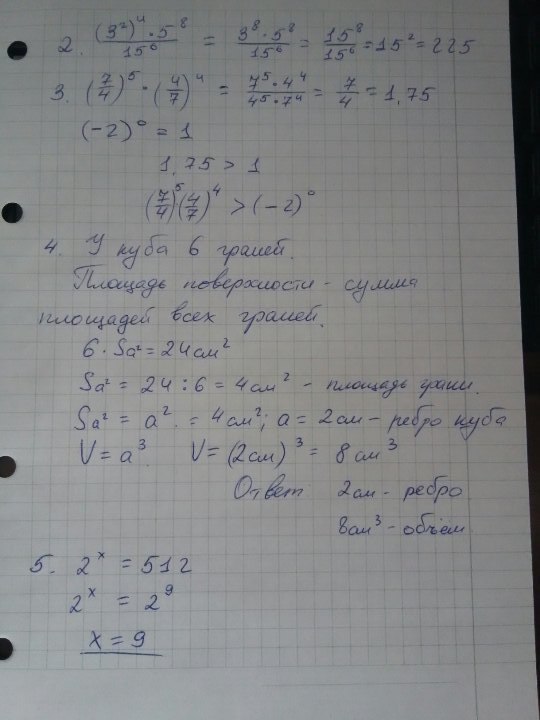 2. (3²)⁴·5⁸/15⁶ = 3⁸·5⁸/15⁶ = 15⁸/15⁶ = 15² = 225
3. (7/4)⁵·(4/7)⁴ = 7⁵·4⁴/4⁵·7⁴ = 7/4 = 1,75
(-2)⁰ = 1
1,75 > 1
(7/4)⁵(4/7)⁴ > (-2)⁰
4. У куба 6 граней.
Площадь поверхности - сумма
площадей всех граней.
6·Sa² = 24см²
Sa² = 24:6 = 4см² - площадь грани.
Sa² = a² = 4см²; a = 2см - ребро куба
V = a³. V = (2см)³ = 8см³
Ответ: 2см - ребро
8см³ - объём
5. 2ˣ = 512
2ˣ = 2⁹
x = 9